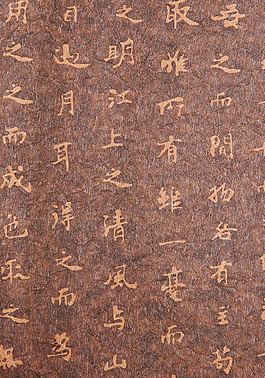 吾之而間物各有主苟
取唯所有雖一毫而
之明江上之清風与山
目遇月耳得之而為
用之之而成色取之